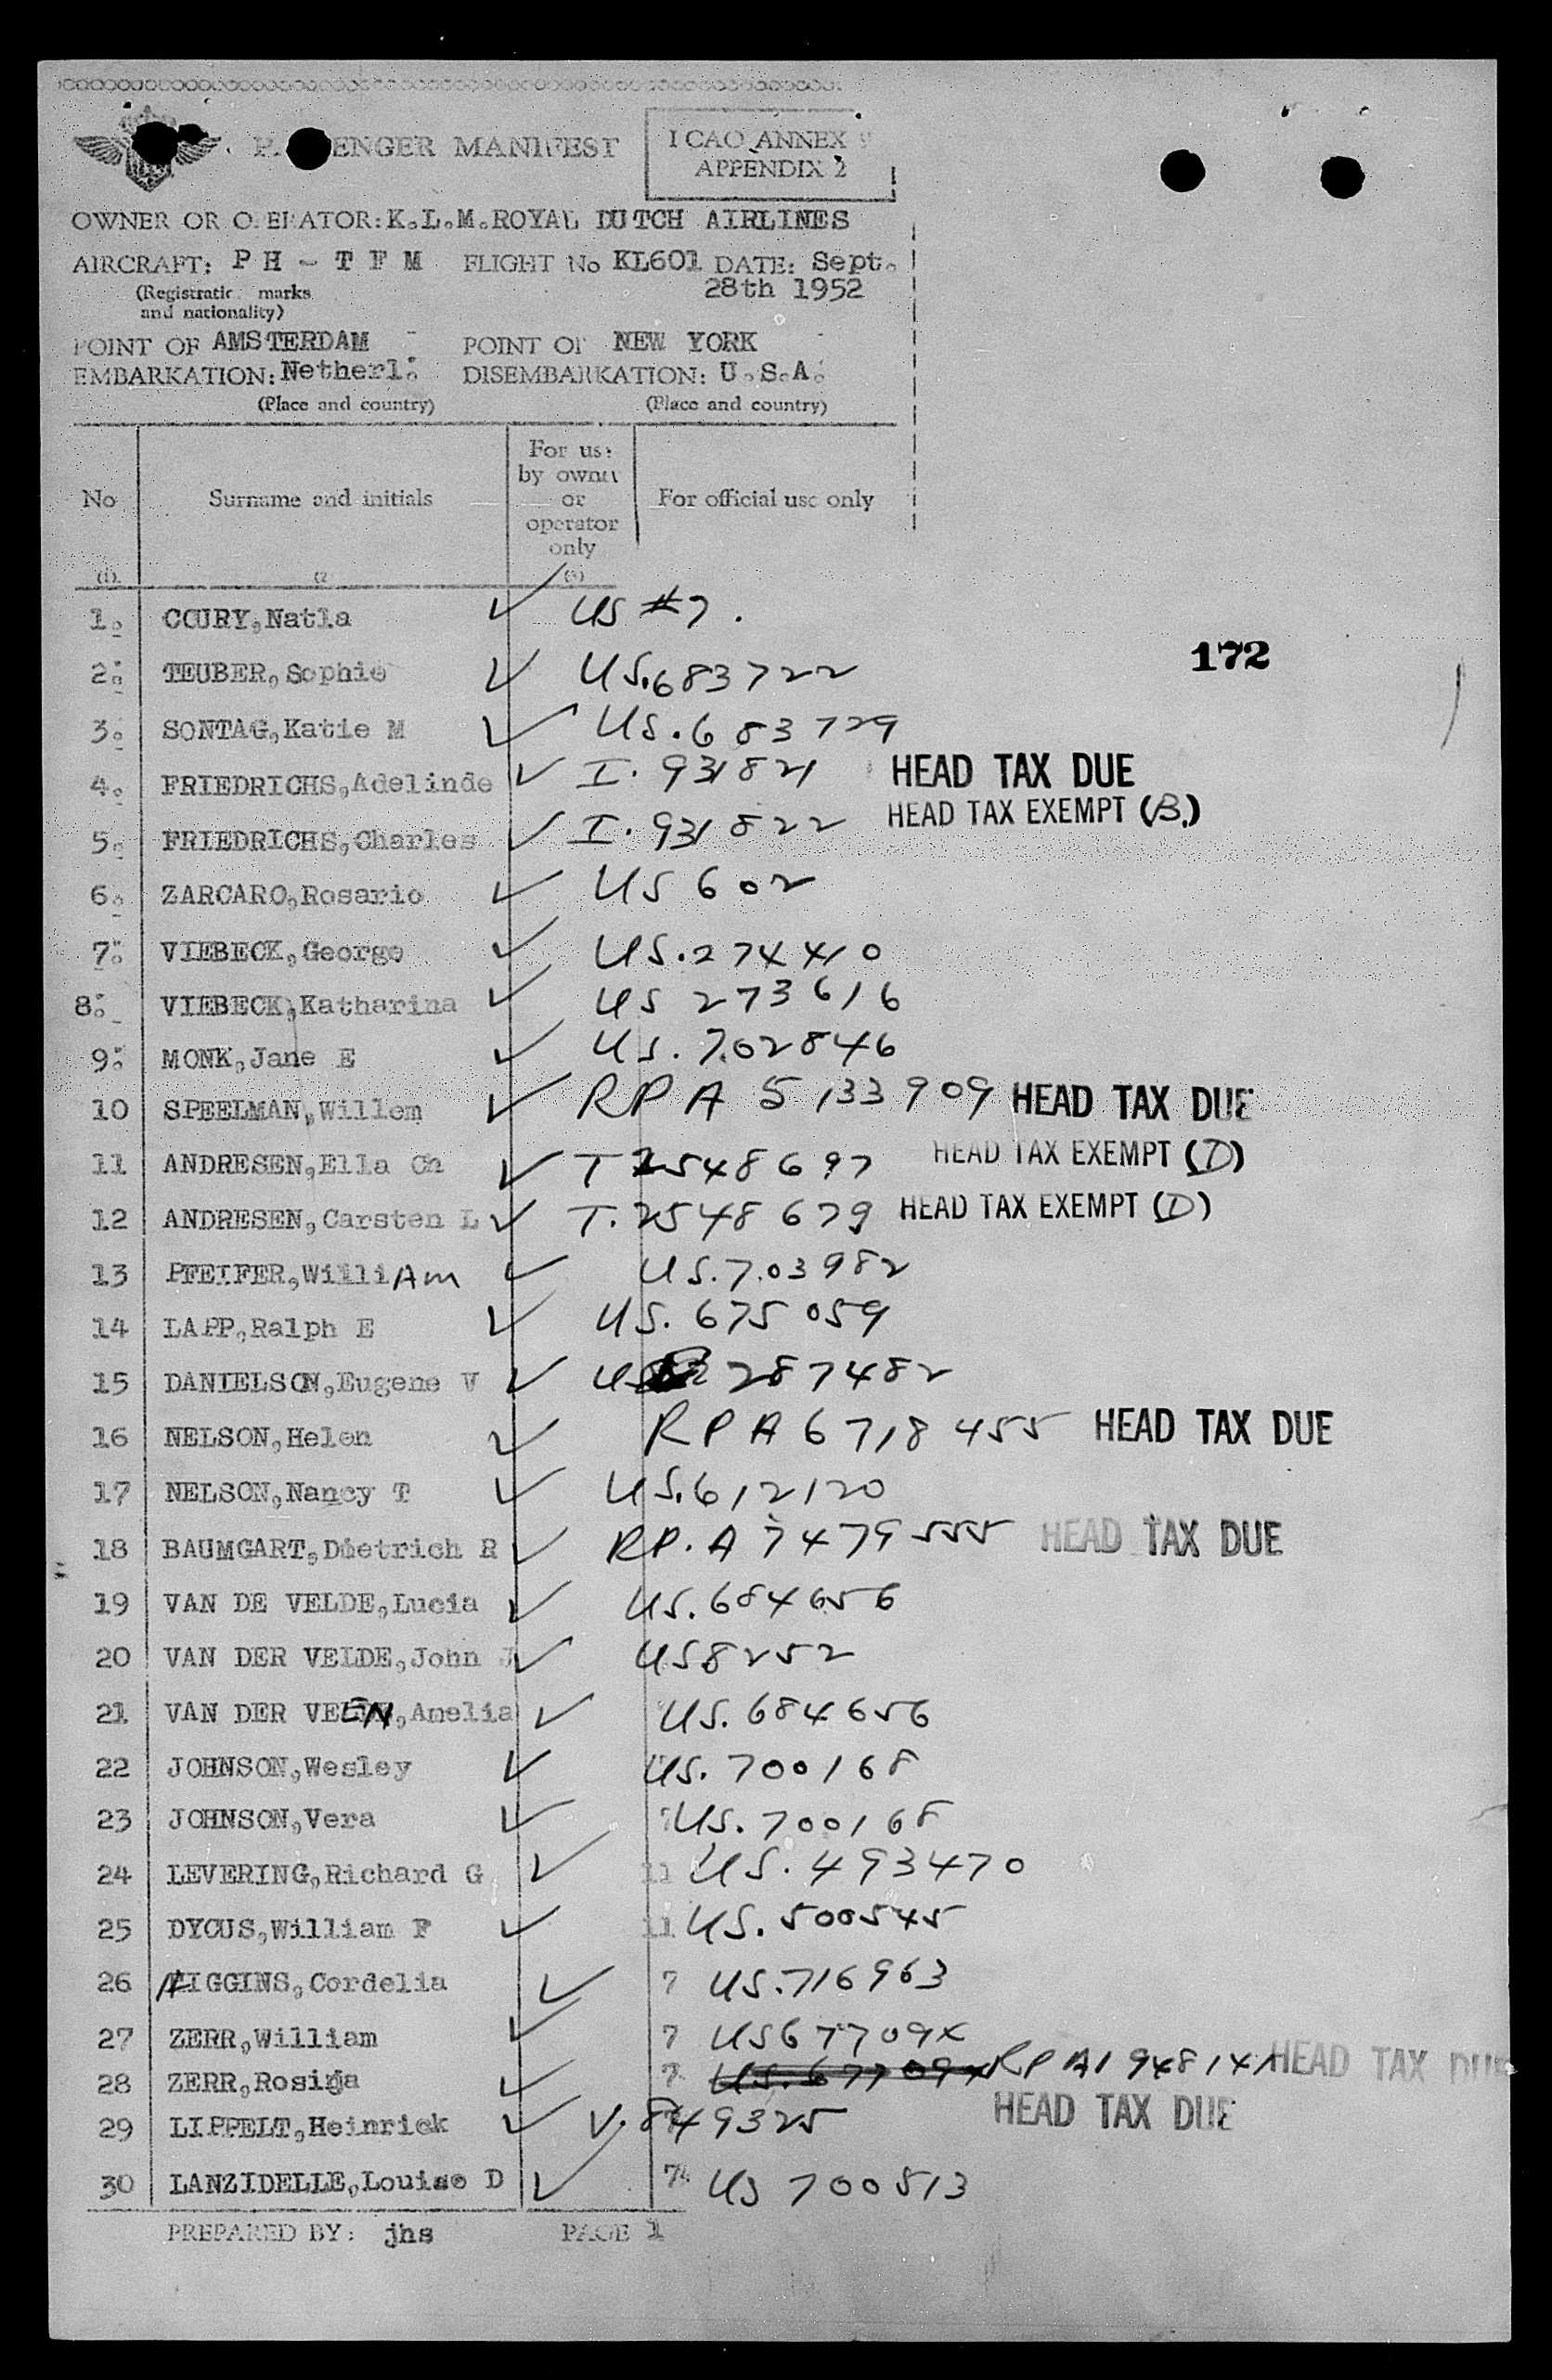 PASSENGER MANIFEST
I CAO ANNEX 9
APPENDIX 2
OWNER OR OPERATOR: K.L.M. ROYAL DUTCH AIRLINES
AIRCRAFT: P H - T F M FLIGHT No KL601 DATE: Sept.
28th 1952
(Registration marks
and nationality)
POINT OF AMSTERDAM POINT OF NEW YORK
EMBARKATION: Netherl. DISEMBARKATION: U.S.A.
(Place and country) (Place and country)
No Surname and initials For use by owner or operator only For official use only
(1) (2 (3)
1. COURY, Natla ✓ US #7.
172
2. TEUBER, Sophie ✓ US.683722
3. SONTAG, Katie M ✓ US.683729
4. FRIEDRICHS, Adelinde ✓ I. 931821 HEAD TAX DUE
5. FRIEDRICHS, Charles ✓ I. 931822 HEAD TAX EXEMPT (B.)
6. ZARCARO, Rosario ✓ US 602
7. VIEBECK, George ✓ US.274410
8. VIEBECK, Katharina ✓ US 273616
9. MONK, Jane E ✓ US. 702846
10 SPEELMAN, Willem ✓ RP A 5133909 HEAD TAX DUE
11 ANDRESEN, Ella Ch ✓ T 2548697 HEAD TAX EXEMPT (D)
12 ANDRESEN, Carsten L ✓ T. 2548679 HEAD TAX EXEMPT (D)
13 PFEIFER, William ✓ US.703982
14 LAPP, Ralph E ✓ US. 675059
15 DANIELSON, Eugene V ✓ US 287482
16 NELSON, Helen ✓ RP A 6718455 HEAD TAX DUE
17 NELSON, Nancy T ✓ US.612120
18 BAUMGART, Dietrich R ✓ RP. A 7479555 HEAD TAX DUE
19 VAN DE VELDE, Lucia ✓ US.684656
20 VAN DER VELDE, John J ✓ US8252
21 VAN DER VEEN, Amelia ✓ US. 684656
22 JOHNSON, Wesley ✓ US. 700168
23 JOHNSON, Vera ✓ 7 US. 700168
24 LEVERING, Richard G ✓ 11 US. 493470
25 DYCUS, William F ✓ 11 US. 500545
26 HIGGINS, Cordelia ✓ 7 US.716963
27 ZERR, William ✓ 7 US67709X
28 ZERR, Rosina ✓ 7 US.67709X RP A1948141 HEAD TAX DUE
29 LIPPELT, Heinrick ✓ V. 849325 HEAD TAX DUE
30 LANZIDELLE, Louise D ✓ 7 US 700513
PREPARED BY: jhs PAGE 1